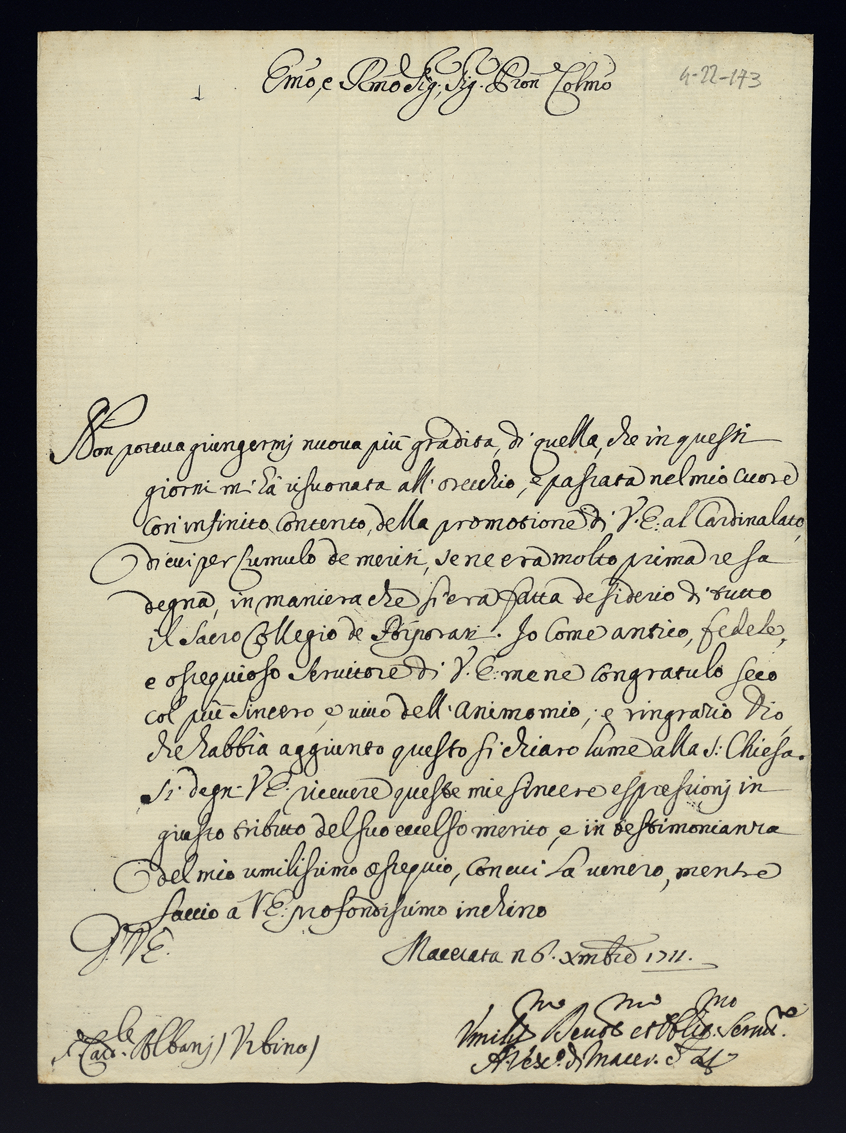 Emo, e Rmo Sig.r, Sig. Pron Colmo
4-22-173
Non poteua giungermj nuoua più gradita, di quella, che in questi
giorni mi hà risuonata all'orecchio, e passata nel mio Cuore
con infinito contento, della promotione di V.E: al Cardinalato,
di cui per cumulo de meriti, se ne era molto prima resa
degna, in maniera che si era fatta desiderio di tutto
il Sacro Collegio de Porporati. Io Come antico, fedele,
e ossequioso Seruitore di V.E: me ne congratulo seco
col più sincero, e uiuo dell'Animo mio, e ringrazio Dio,
che habbia aggiunto questo si chiaro lume alla S: Chiesa.
Si degni V.E: riceuere queste mie sincere espressionj in
giusto tributo del suo eccelso merito, e in testimonianza
del mio umilissimo ossequio, con cui La uenero, mentre
faccio a V.E: profondissimo inchino
D. V.E.
Macerata n 6. Xmbre 1711.
Card.le Albanj / Vrbino /
Vmiliss.mo Deuot.mo et Obligmo Seruit.re
A. Vesc.o di Macer.